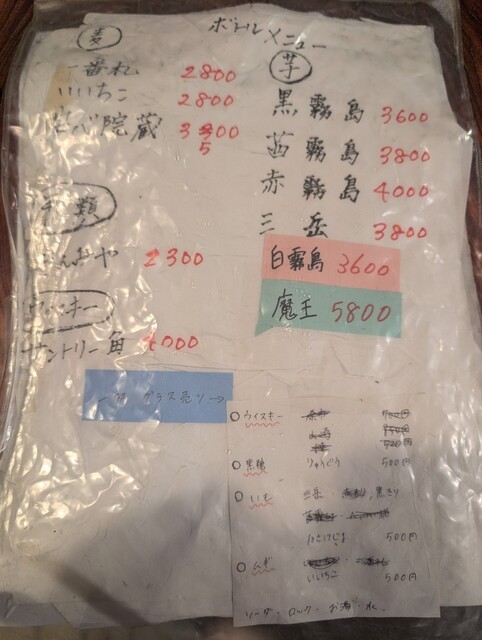 ボトルメニュー
麦
一番札 2800
いいちこ 2800
院蔵 3500
芋
黒霧島 3600
茜霧島 3800
赤霧島 4000
三岳 3800
白霧島 3600
魔王 5800
類
2300
サントリー角 4000
グラス売り→
○ウイスキー
○黒糖 りゅうぐう 500円
○いも 三岳・ 黒きり
500円
○むぎ
いいちこ 500円
ソーダ・ロック・お湯・水